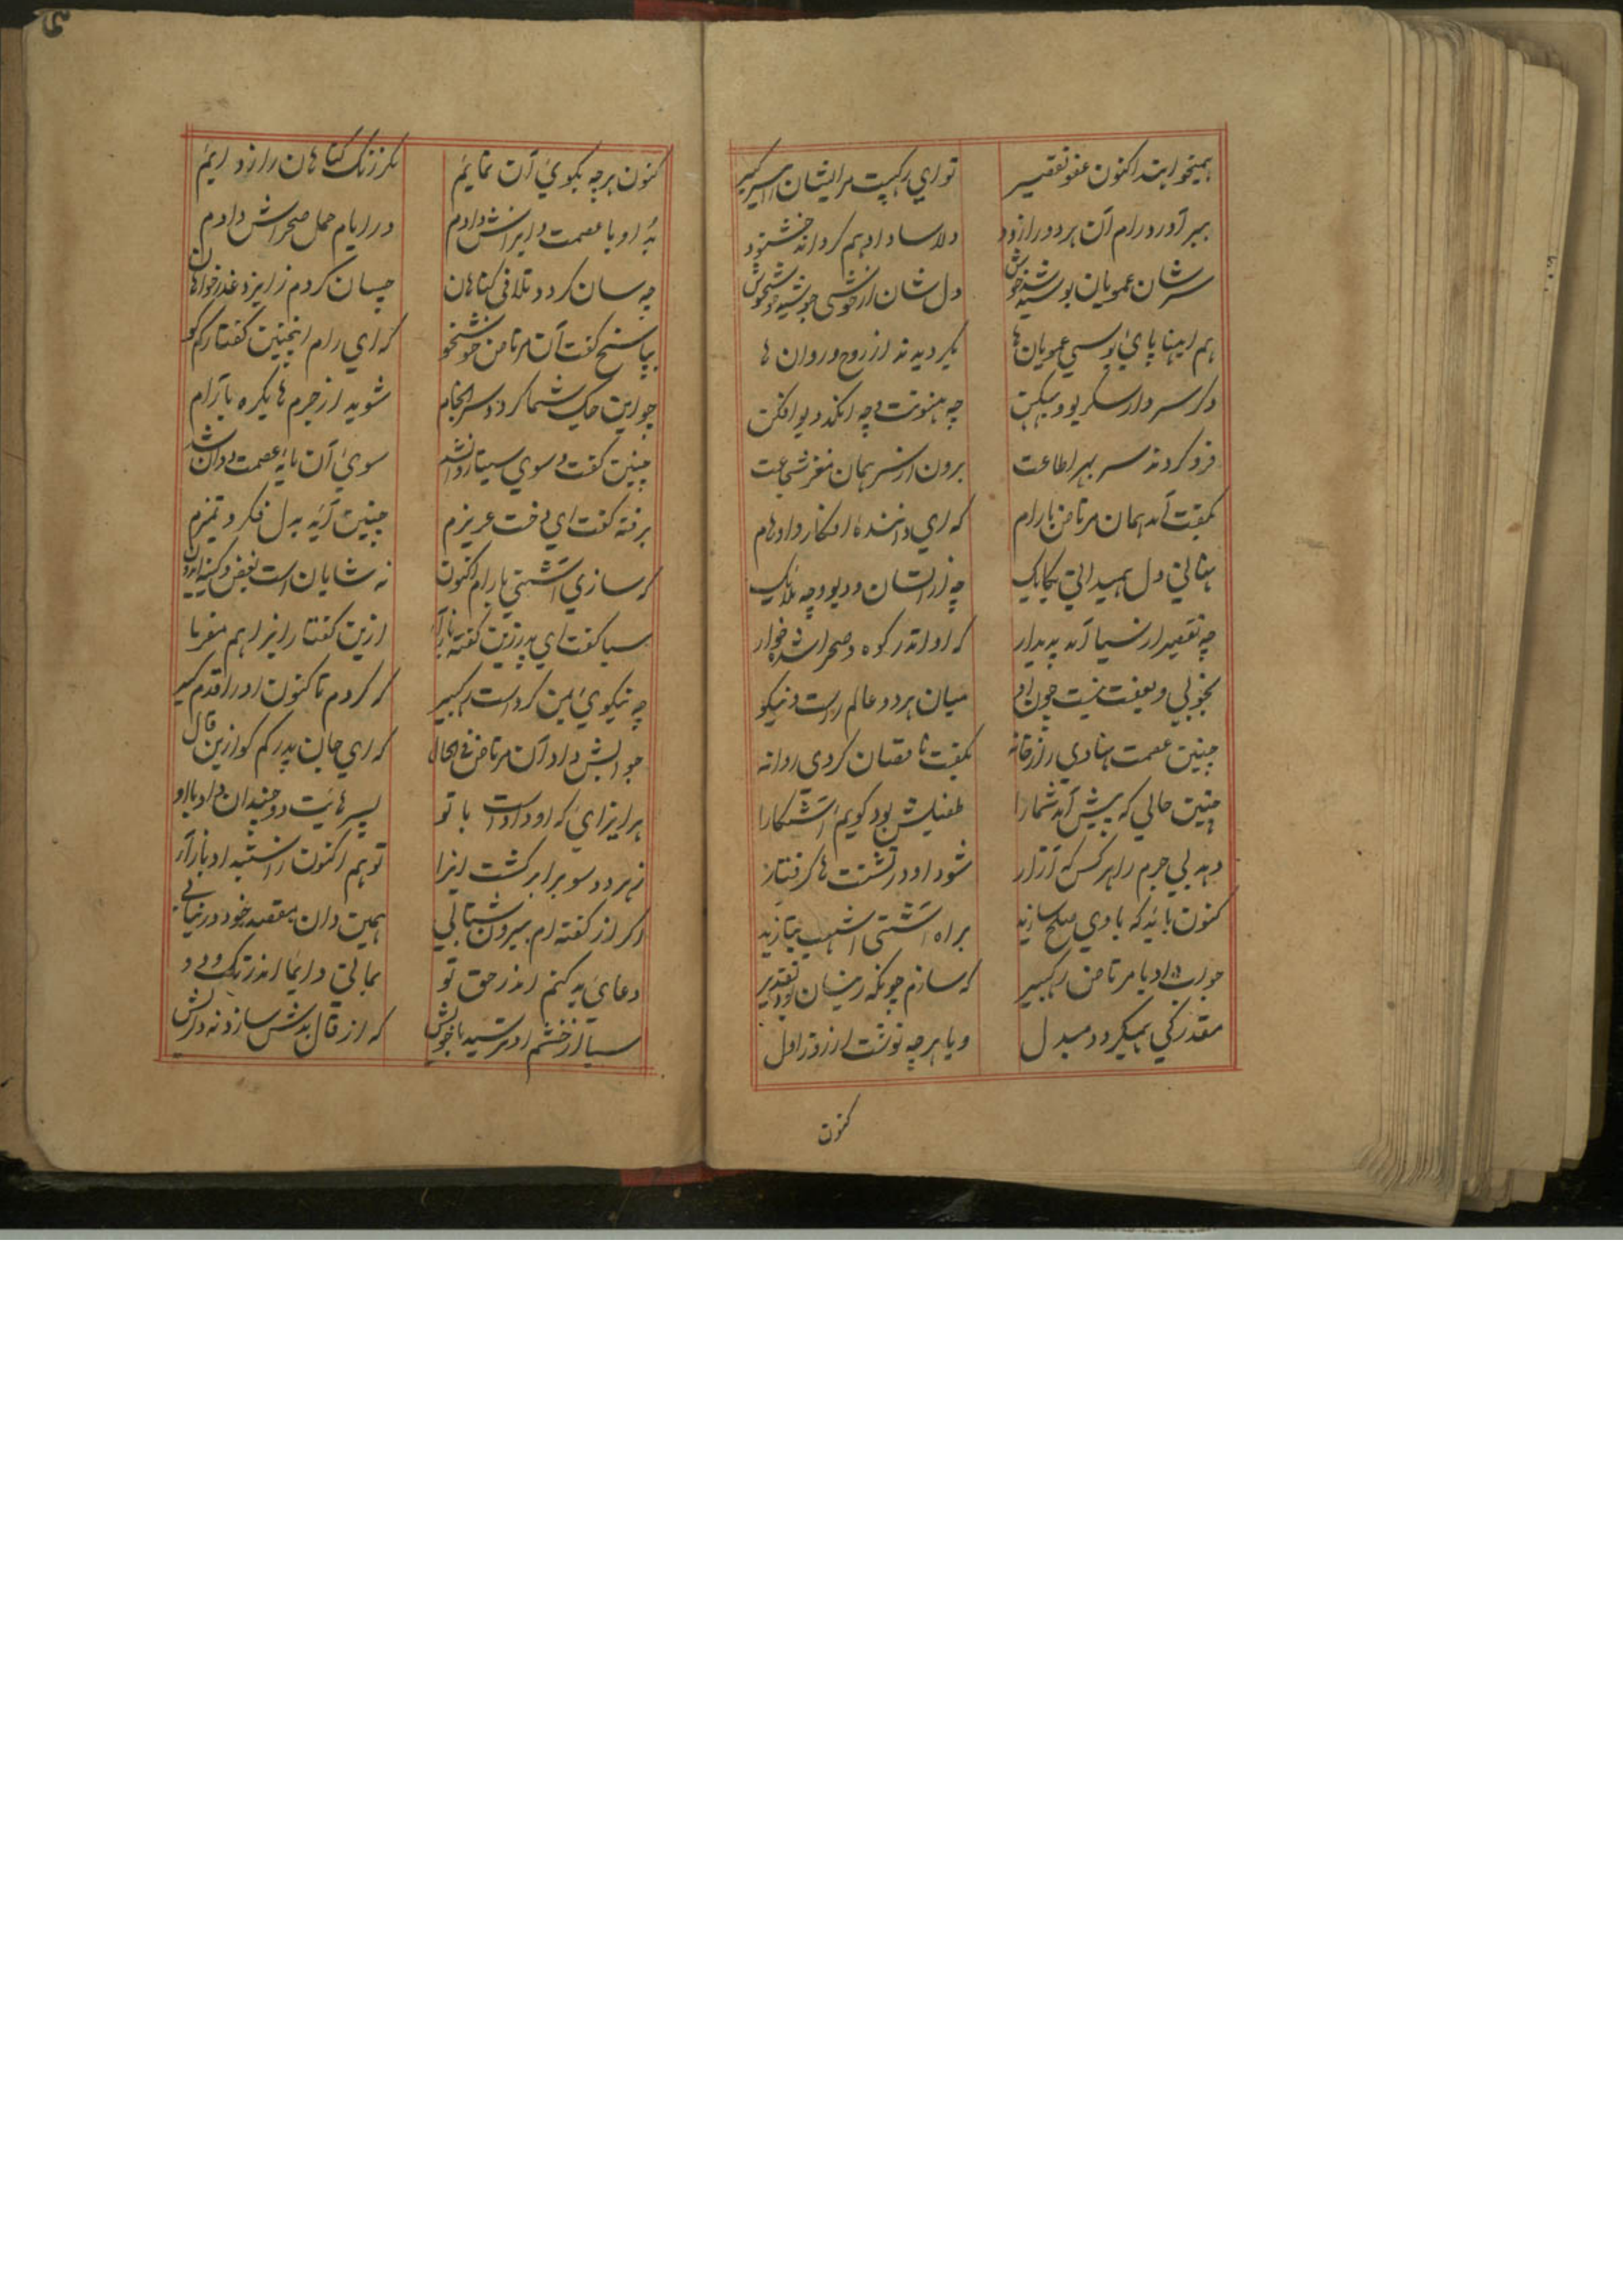 همیخواهند اکنون عفو تقصیر تو ای رکهیت مر ایشان را
ببر آورد رام آن هر دو را زود دلاسا داد هم کردانه خشنود
سر شان عمویان بوسیدند خوش دل شان از خوشی
هم اینها پای بوسی عمویان ها بکردیدند از روح و روان ها
دکر سردار سکریو و بهیکهن چه هنونت و چه انکد دیو افکن
فرو کردند سر بهر اطاعت برون از سر همان مغز شجاعت
بگفت آمد همان مرتاض با رام که ای دانندهٔ افکار و اوهام
نهانی دل همیدانی یکایک چه از انسان و دیو و چه ملایک
چه تقصیر از سیا آمد پدیدار که او اندر کوه و صحرا شده خوار
بخوبی و بعفت نیست چون او میان هر دو عالم راست و نیکو
چنین عصمت نهادی را ز خانه بگفت ناقصان کردی روانه
چنین حالی که پیش آمد شما را طفیلش بود گویم آشکارا
دهد بی جرم را هر کس که آزار شود او در تشتت ها گرفتار
کنون باید که با وی صلح سازید براه آشتی اشهب بتازید
جواب داد با مرتاض رکهبیر که سازم چونکه زینسان بود تقدیر
مقدر کی همیگردد مبدل و یا هر چه نوشت از روز اول
کنون
کنون هر چه بکوی آن نمایم مکر زنک کناهان را زدایم
به او با عصمت و ایرانش دادم در ایام حمل صحراش دادم
چه سان کردد تلافی کناهان چسان کردم ز ایزد عذر خواهان
بپاسخ گفت آن مرتاض خوشخو که ای رام اینچنین گفتار کم کو
چو این حک شما کردد سرانجام شوید از جرم ها یکره بآرام
چنین گفت و سوی سیتا روان شد سوی آن مایهٔ عصمت دوان شد
برفته گفت ای دخت عزیزم چنین آید به دل فکر و تمیزم
که سازی آشتی با رام اکنون نه شایان است بغض و کینه
سیا گفت ای پدر زین گفته باز آ ازین گفتار ایرا هم مفرما
چه نیکوی بمن کرد است رکهبیر که کردم تا کنون او را قدم کیر
جوابش داد آن مرتاض فی الحال که ای جان پدر کم کو ازین قال
هر ایزای که او داد است با تو پسرهایت دو چندان داد با او
ز هر دو سو برابر گشت ایزا تو هم اکنون ز اندیشه او باز آ
اگر از گفته ام بیرون شتابی همین دان مقصد خود در نیابی
دعای بد کنم اندر حق تو بمانی دایما اندر
سیا از خشم او ترسید با خویش که از قال بدش سازد نه دلریش